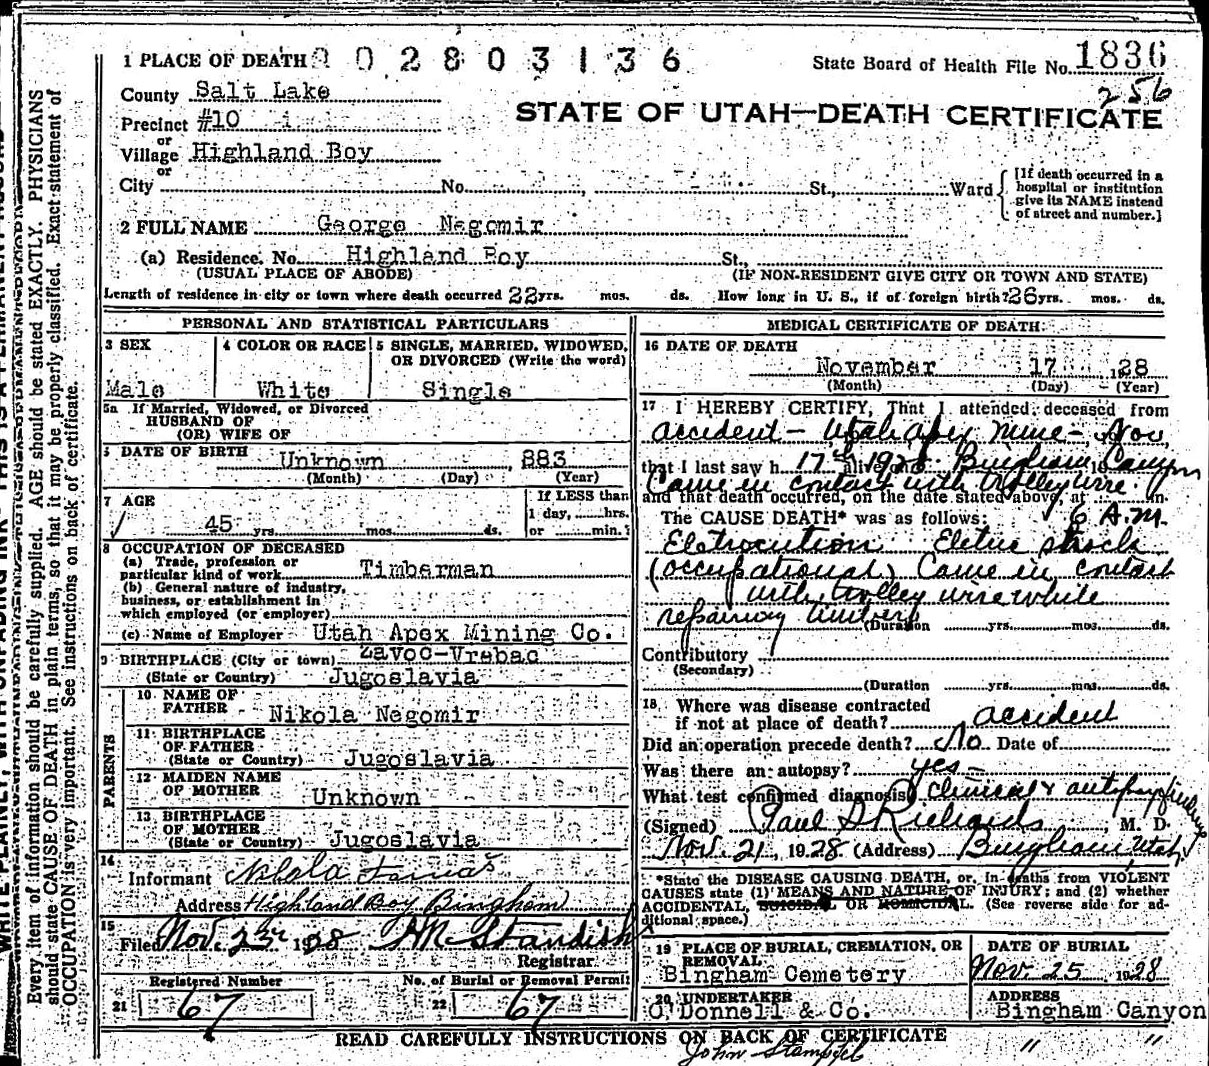 1 PLACE OF DEATH 2 0 2 8 0 3 1 3 6 State Board of Health File No. 1836
256
County Salt Lake
STATE OF UTAH—DEATH CERTIFICATE
Precinct #10
or
Village Highland Boy
or
City No. St., Ward
[If death occurred in a hospital or institution give its NAME instead of street and number.]
2 FULL NAME George Negomir
(a) Residence. No. Highland Boy St.,
(USUAL PLACE OF ABODE) (IF NON-RESIDENT GIVE CITY OR TOWN AND STATE)
Length of residence in city or town where death occurred 22 yrs. mos. ds. How long in U. S., if of foreign birth? 26 yrs. mos. ds.
PERSONAL AND STATISTICAL PARTICULARS
3 SEX 4 COLOR OR RACE 5 SINGLE, MARRIED, WIDOWED, OR DIVORCED (Write the word)
Male White Single
5a If Married, Widowed, or Divorced
HUSBAND OF
(OR) WIFE OF
6 DATE OF BIRTH Unknown 883
(Month) (Day) (Year)
7 AGE If LESS than
1 day, hrs.
45 yrs. mos. ds. or min.
8 OCCUPATION OF DECEASED
(a) Trade, profession or
particular kind of work Timberman
(b) General nature of industry,
business, or establishment in
which employed (or employer)
(c) Name of Employer Utah Apex Mining Co.
9 BIRTHPLACE (City or town) Zavoo-Vrebac
(State or Country) Jugoslavia
PARENTS
10 NAME OF
FATHER Nikola Negomir
11 BIRTHPLACE
OF FATHER
(State or Country) Jugoslavia
12 MAIDEN NAME
OF MOTHER Unknown
13 BIRTHPLACE
OF MOTHER
(State or Country) Jugoslavia
14
Informant Nikola
Address Highland Boy Bingham
15
Filed Nov. 23, 1928 H M Standish
Registrar
Registered Number No. of Burial or Removal Permit
21 67 22 67
MEDICAL CERTIFICATE OF DEATH
16 DATE OF DEATH
November 17 1928
(Month) (Day) (Year)
17 I HEREBY CERTIFY, That I attended deceased from
accident - Utah apex mine - Nov
that I last saw h 17th 1928 alive on Bingham Canyon 19
Came in contact with trolley wire
and that death occurred, on the date stated above, at m.
The CAUSE DEATH* was as follows: 6 A.M.
Eletrocution Eletric shock
(occupational) Came in contact
with trolley wire while
repairing timbers
(Duration yrs. mos. ds.
Contributory
(Secondary)
(Duration yrs. mos. ds.
18 Where was disease contracted
if not at place of death? accident
Did an operation precede death? No Date of
Was there an autopsy? yes -
What test confirmed diagnosis? Clinical & autopsy findings
(Signed) Paul S Richards, M. D.
Nov. 21, 1928 (Address) Bingham Utah
*State the DISEASE CAUSING DEATH, or, in deaths from VIOLENT
CAUSES state (1) MEANS AND NATURE OF INJURY; and (2) whether
ACCIDENTAL, SUICIDAL OR HOMICIDAL. (See reverse side for ad-
ditional space.)
19 PLACE OF BURIAL, CREMATION, OR REMOVAL DATE OF BURIAL
Bingham Cemetery Nov. 25 1928
20 UNDERTAKER ADDRESS
O'Donnell & Co. Bingham Canyon
READ CAREFULLY INSTRUCTIONS ON BACK OF CERTIFICATE
John " "
Every item of information should be carefully supplied. AGE should be stated EXACTLY. PHYSICIANS
should state CAUSE OF DEATH in plain terms, so that it may be properly classified. Exact statement of
OCCUPATION is very important. See instructions on back of certificate.